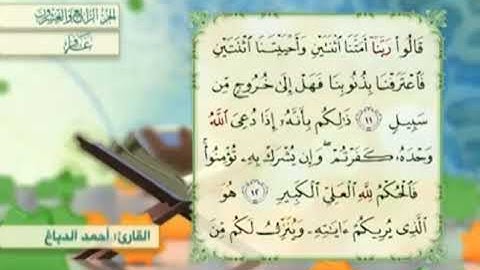 الجزء الرابع والعشرون
غافر
قَالُوا۟ رَبَّنَآ أَمَتَّنَا ٱثْنَتَيْنِ وَأَحْيَيْتَنَا ٱثْنَتَيْنِ
فَٱعْتَرَفْنَا بِذُنُوبِنَا فَهَلْ إِلَىٰ خُرُوجٍ مِّن
سَبِيلٍ ١١ ذَٰلِكُم بِأَنَّهُۥٓ إِذَا دُعِىَ ٱللَّهُ
وَحْدَهُۥ كَفَرْتُمْ ۖ وَإِن يُشْرَكْ بِهِۦ تُؤْمِنُوا۟ ۚ
فَٱلْحُكْمُ لِلَّهِ ٱلْعَلِىِّ ٱلْكَبِيرِ ١٢ هُوَ
ٱلَّذِى يُرِيكُمْ ءَايَٰتِهِۦ وَيُنَزِّلُ لَكُم مِّنَ
القارئ: أحمد الدباغ